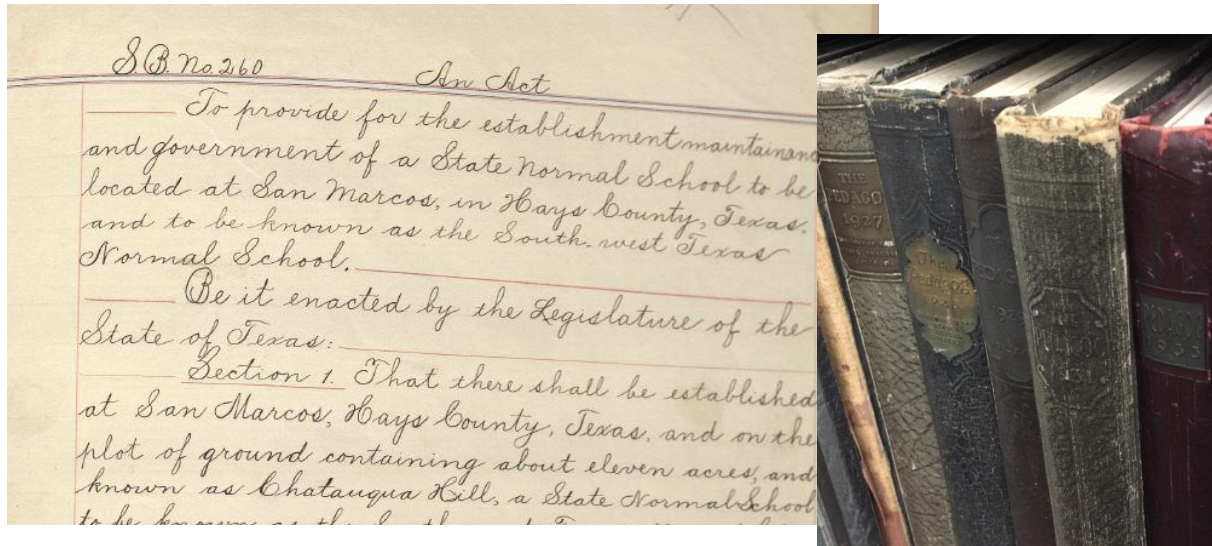 S.B. No. 260
An Act
To provide for the establishment maintainanc
and government of a State Normal School to be
located at San Marcos, in Hays County, Texas.
and to be known as the South-west Texas
Normal School.
Be it enacted by the Legislature of the
State of Texas:
Section 1. That there shall be established
at San Marcos, Hays County, Texas, and on the
plot of ground containing about eleven acres, and
known as Chatauqua Hill, a State Normal School
to be known as the
THE
PEDAGO
1927
The
Pedagog
THE
1933